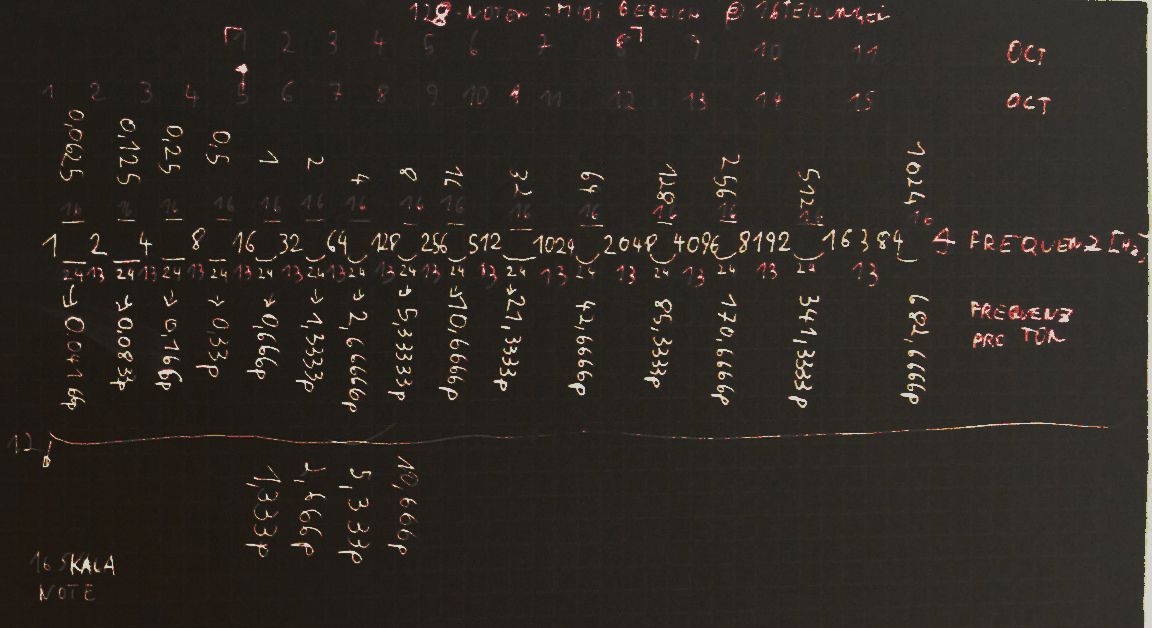 128 NOTEN = MIDI BEREICH @ 16TEILUNGEN
1 2 3 4 5 6 7 8 9 10 11 OCT
1 2 3 4 5 6 7 8 9 10 11 12 13 14 15 OCT
0,0625 0,125 0,25 0,5 1 2 4 8 16 32 64 128 256 512 1024
16 16 16 16 16 16 16 16 16 16 16 16 16 16 16
1 2 4 8 16 32 64 128 256 512 1024 2048 4096 8192 16384 FREQUENZ [Hz]
24 13 24 13 24 13 24 13 24 13 24 13 24 13 24 13 24 13 24 13 24 13 24 13 24 13 24 13
→0,0416p →0,083p →0,166p →0,33p →0,666p →1,333p →2,6666p →5,33333p →10,6666p →21,3333p 42,6666p 85,3333p 170,6666p 341,3333p 682,6666p FREQUENZ
PRO TON
12
1,333p 2,666p 5,333p 10,666p
16 SKALA
NOTE